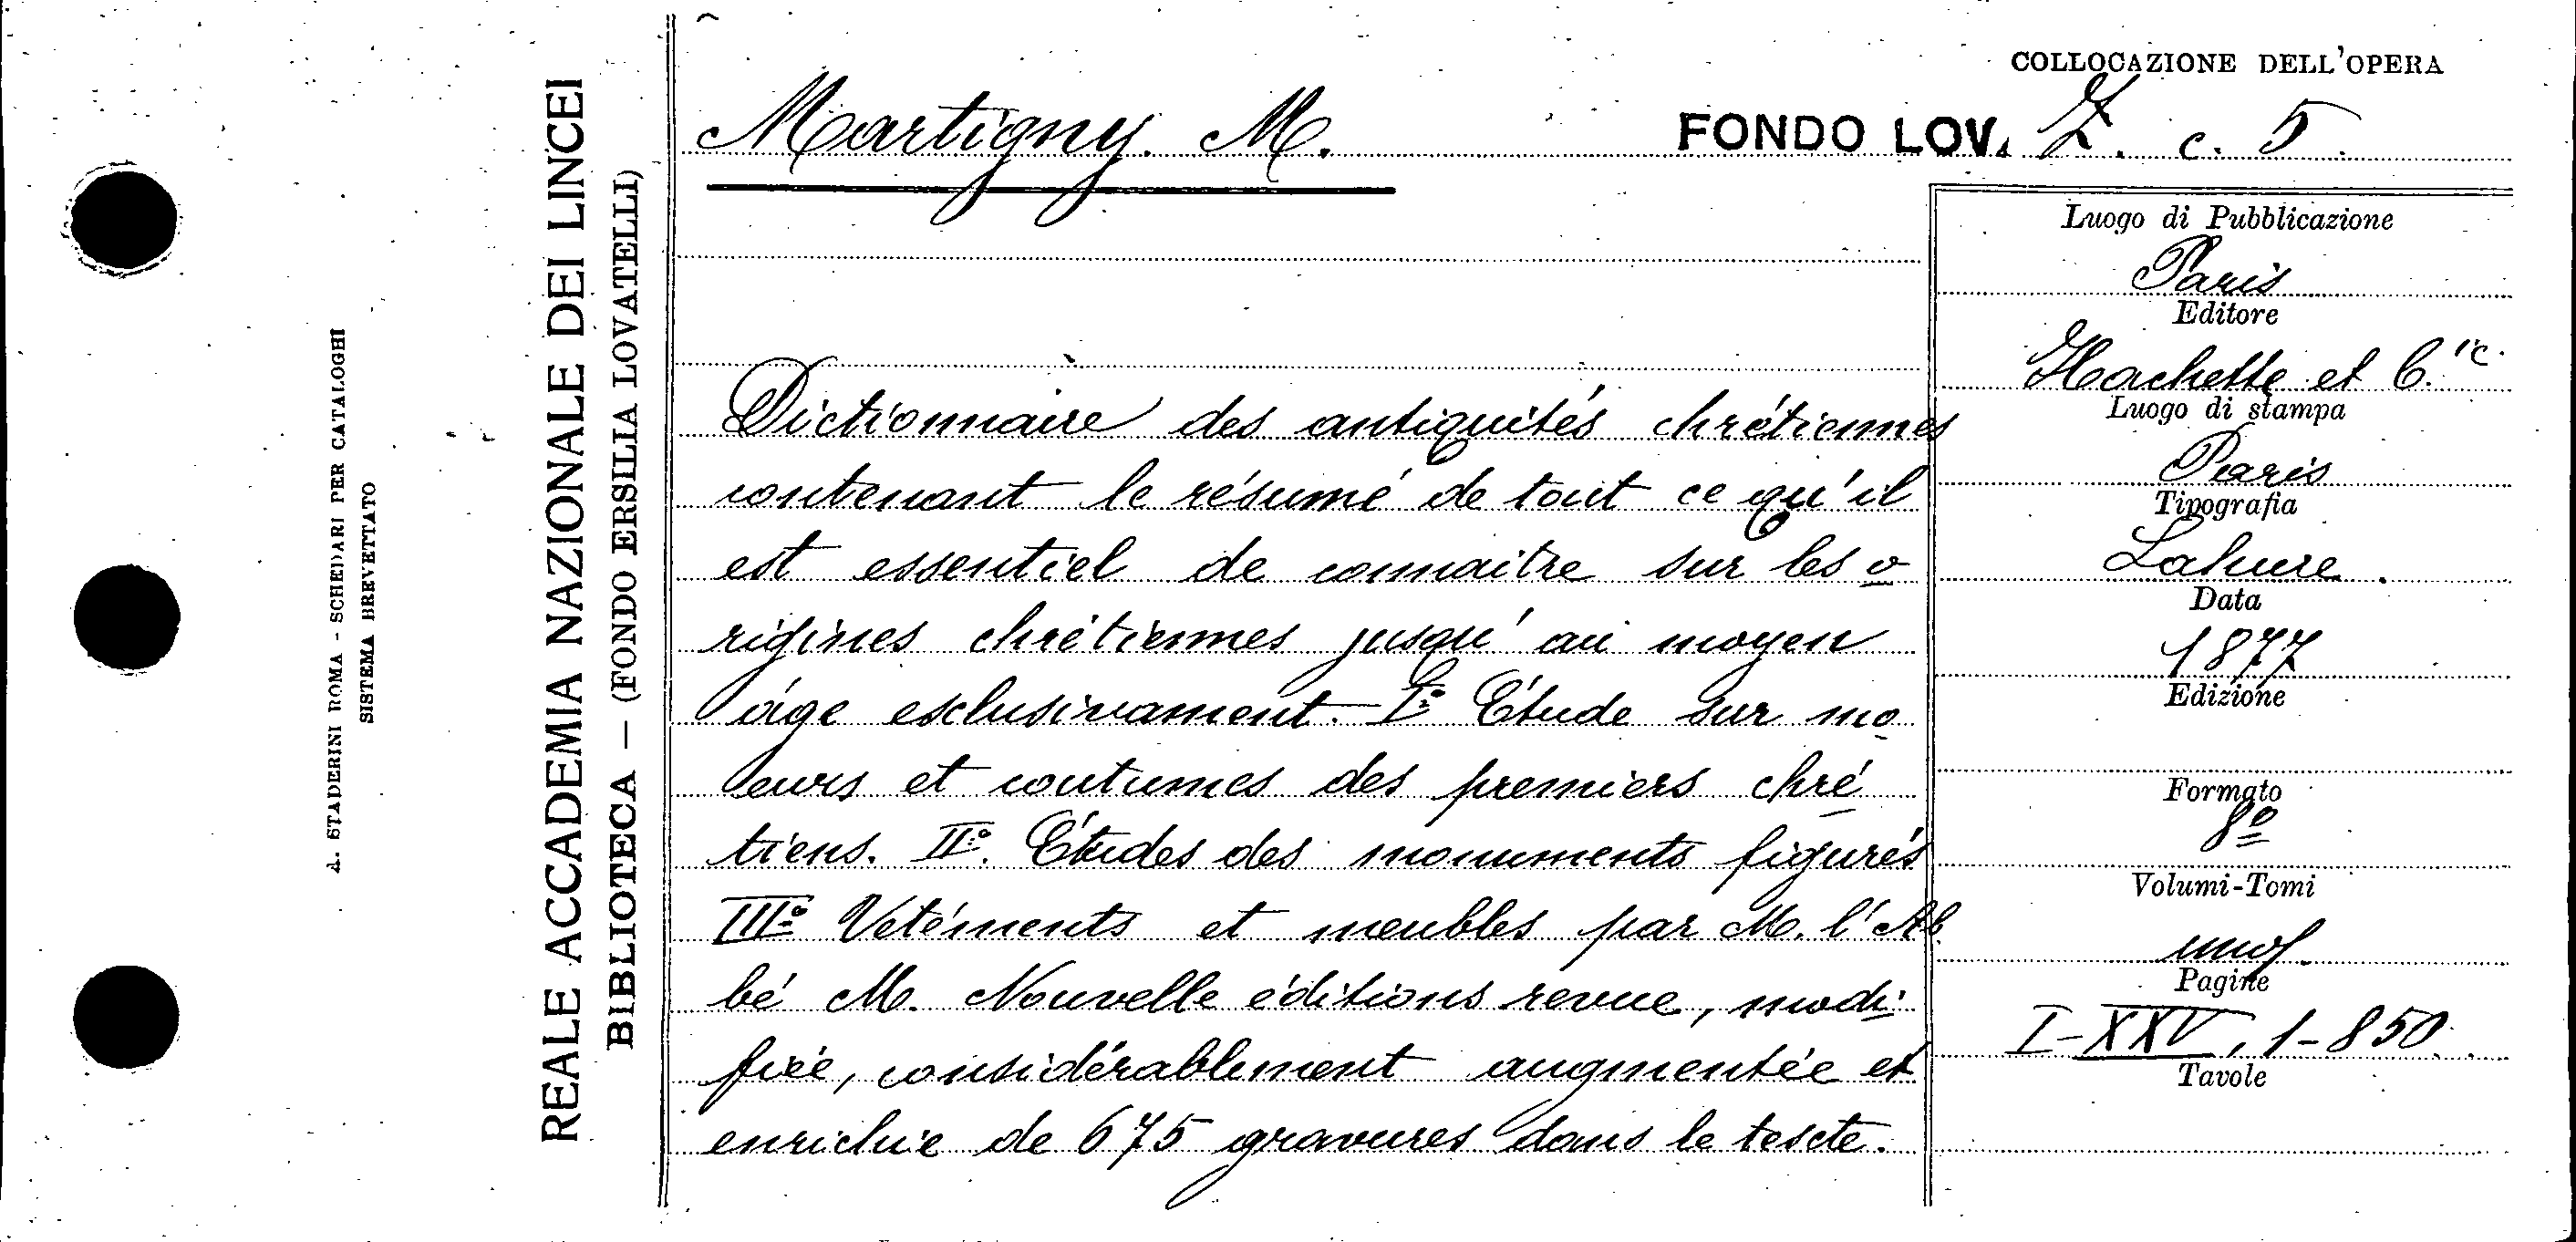 COLLOCAZIONE DELL'OPERA
Martigny. M.
FONDO LOV. Z. c. 5.
Dictionnaire des antiquités chrétiennes
contenant le résumé de tout ce qu'il
est essentiel de connaitre sur les o
rigines chrétiennes jusqu'au moyen
âge esclusivament. I.º Étude sur mo
eurs et coutumes des premiers chré
tiens. IIº. Études des monuments figurés
IIIº Vetéments et meubles par M. l'Ab
bé M. Nouvelle éditions revue, modi
fiée, considérablement augmentée et
enrichie de 675 gravures dans le tescte.
Luogo di Pubblicazione
Paris
Editore
Hachette et C.ie.
Luogo di stampa
Paris
Tipografia
Lahure.
Data
1877
Edizione
Formato
8º
Volumi-Tomi
uno
Pagine
I-XXV, 1-850.
Tavole
REALE ACCADEMIA NAZIONALE DEI LINCEI
BIBLIOTECA — (FONDO ERSILIA LOVATELLI)
A. STADERINI ROMA - SCHEDARI PER CATALOGHI
SISTEMA BREVETTATO